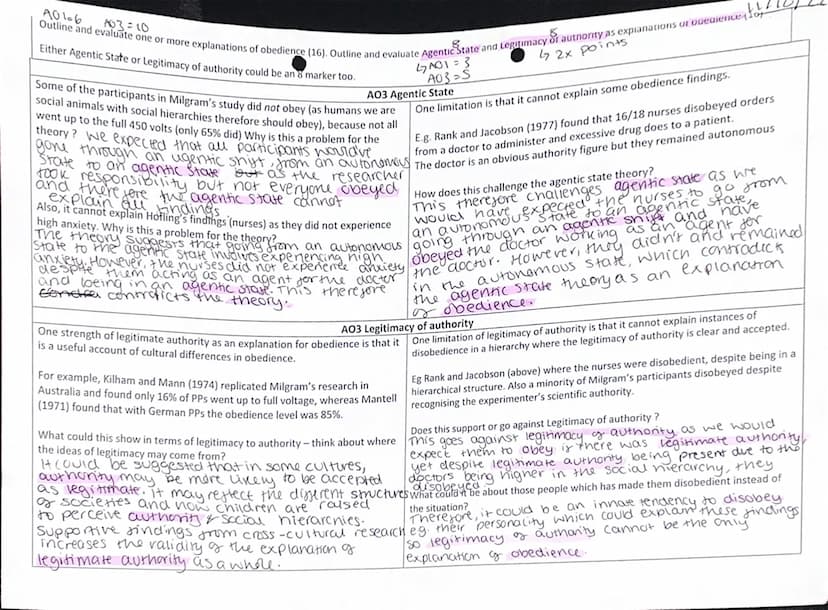 AO1=6 AO3=10
11/10/22
Outline and evaluate one or more explanations of obedience (16). Outline and evaluate Agentic State and Legitimacy of authority as explanations of obedience (16)
8 8
↳ AO1 = 3
AO3 = 5
↳ 2x points
Either Agentic State or Legitimacy of authority could be an 8 marker too.
AO3 Agentic State
Some of the participants in Milgram's study did not obey (as humans we are
social animals with social hierarchies therefore should obey), because not all
went up to the full 450 volts (only 65% did) Why is this a problem for the
theory? We expected that all participants would've
gone through an agentic shift, from an autonomous
state to an agentic state as the researcher
took responsibility but not everyone obeyed
and therefore the agentic state cannot
explain all findings.
Also, it cannot explain Hofling's findings (nurses) as they did not experience
high anxiety. Why is this a problem for the theory?
The theory suggests that going from an autonomous
state to the agentic state involves experiencing high
anxiety. However, the nurses did not experience anxiety
despite them acting as an agent for the doctor
and being in an agentic state. This therefore
contradicts the theory.
One limitation is that it cannot explain some obedience findings.
E.g. Rank and Jacobson (1977) found that 16/18 nurses disobeyed orders
from a doctor to administer and excessive drug does to a patient.
The doctor is an obvious authority figure but they remained autonomous
How does this challenge the agentic state theory?
This therefore challenges agentic state as we
would have expected the nurses to go from
an autonomous state to an agentic state,
going through an agentic shift and have
obeyed the doctor working as an agent for
the doctor. However, they didn't and remained
in the autonomous state, which contradicts
the agentic state theory as an explanation
of obedience.
AO3 Legitimacy of authority
One strength of legitimate authority as an explanation for obedience is that it
is a useful account of cultural differences in obedience.
For example, Kilham and Mann (1974) replicated Milgram's research in
Australia and found only 16% of PPs went up to full voltage, whereas Mantell
(1971) found that with German PPs the obedience level was 85%.
What could this show in terms of legitimacy to authority – think about where
the ideas of legitimacy may come from?
It could be suggested that in some cultures,
authority may be more likely to be accepted
as legitimate. It may reflect the different structures
of societies and how children are raised
to perceive authority & social hierarchies.
Supportive findings from cross-cultural research
increases the validity of the explanation of
legitimate authority as a whole.
One limitation of legitimacy of authority is that it cannot explain instances of
disobedience in a hierarchy where the legitimacy of authority is clear and accepted.
Eg Rank and Jacobson (above) where the nurses were disobedient, despite being in a
hierarchical structure. Also a minority of Milgram's participants disobeyed despite
recognising the experimenter's scientific authority.
Does this support or go against Legitimacy of authority ?
This goes against legitimacy of authority as we would
expect them to obey if there was legitimate authority,
yet despite legitimate authority being present due to the
doctors being higher in the social hierarchy, they
disobeyed.
What could it be about those people which has made them disobedient instead of
the situation?
Therefore, it could be an innate tendency to disobey
eg. their personality which could explain these findings
so legitimacy of authority cannot be the only
explanation of obedience.